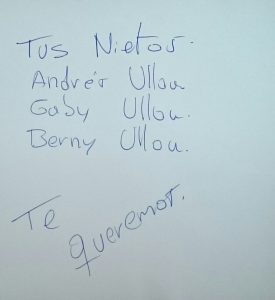 Tus Nietos.
Andrés Ulloa
Gaby Ulloa.
Berny Ulloa.
Te
queremos.